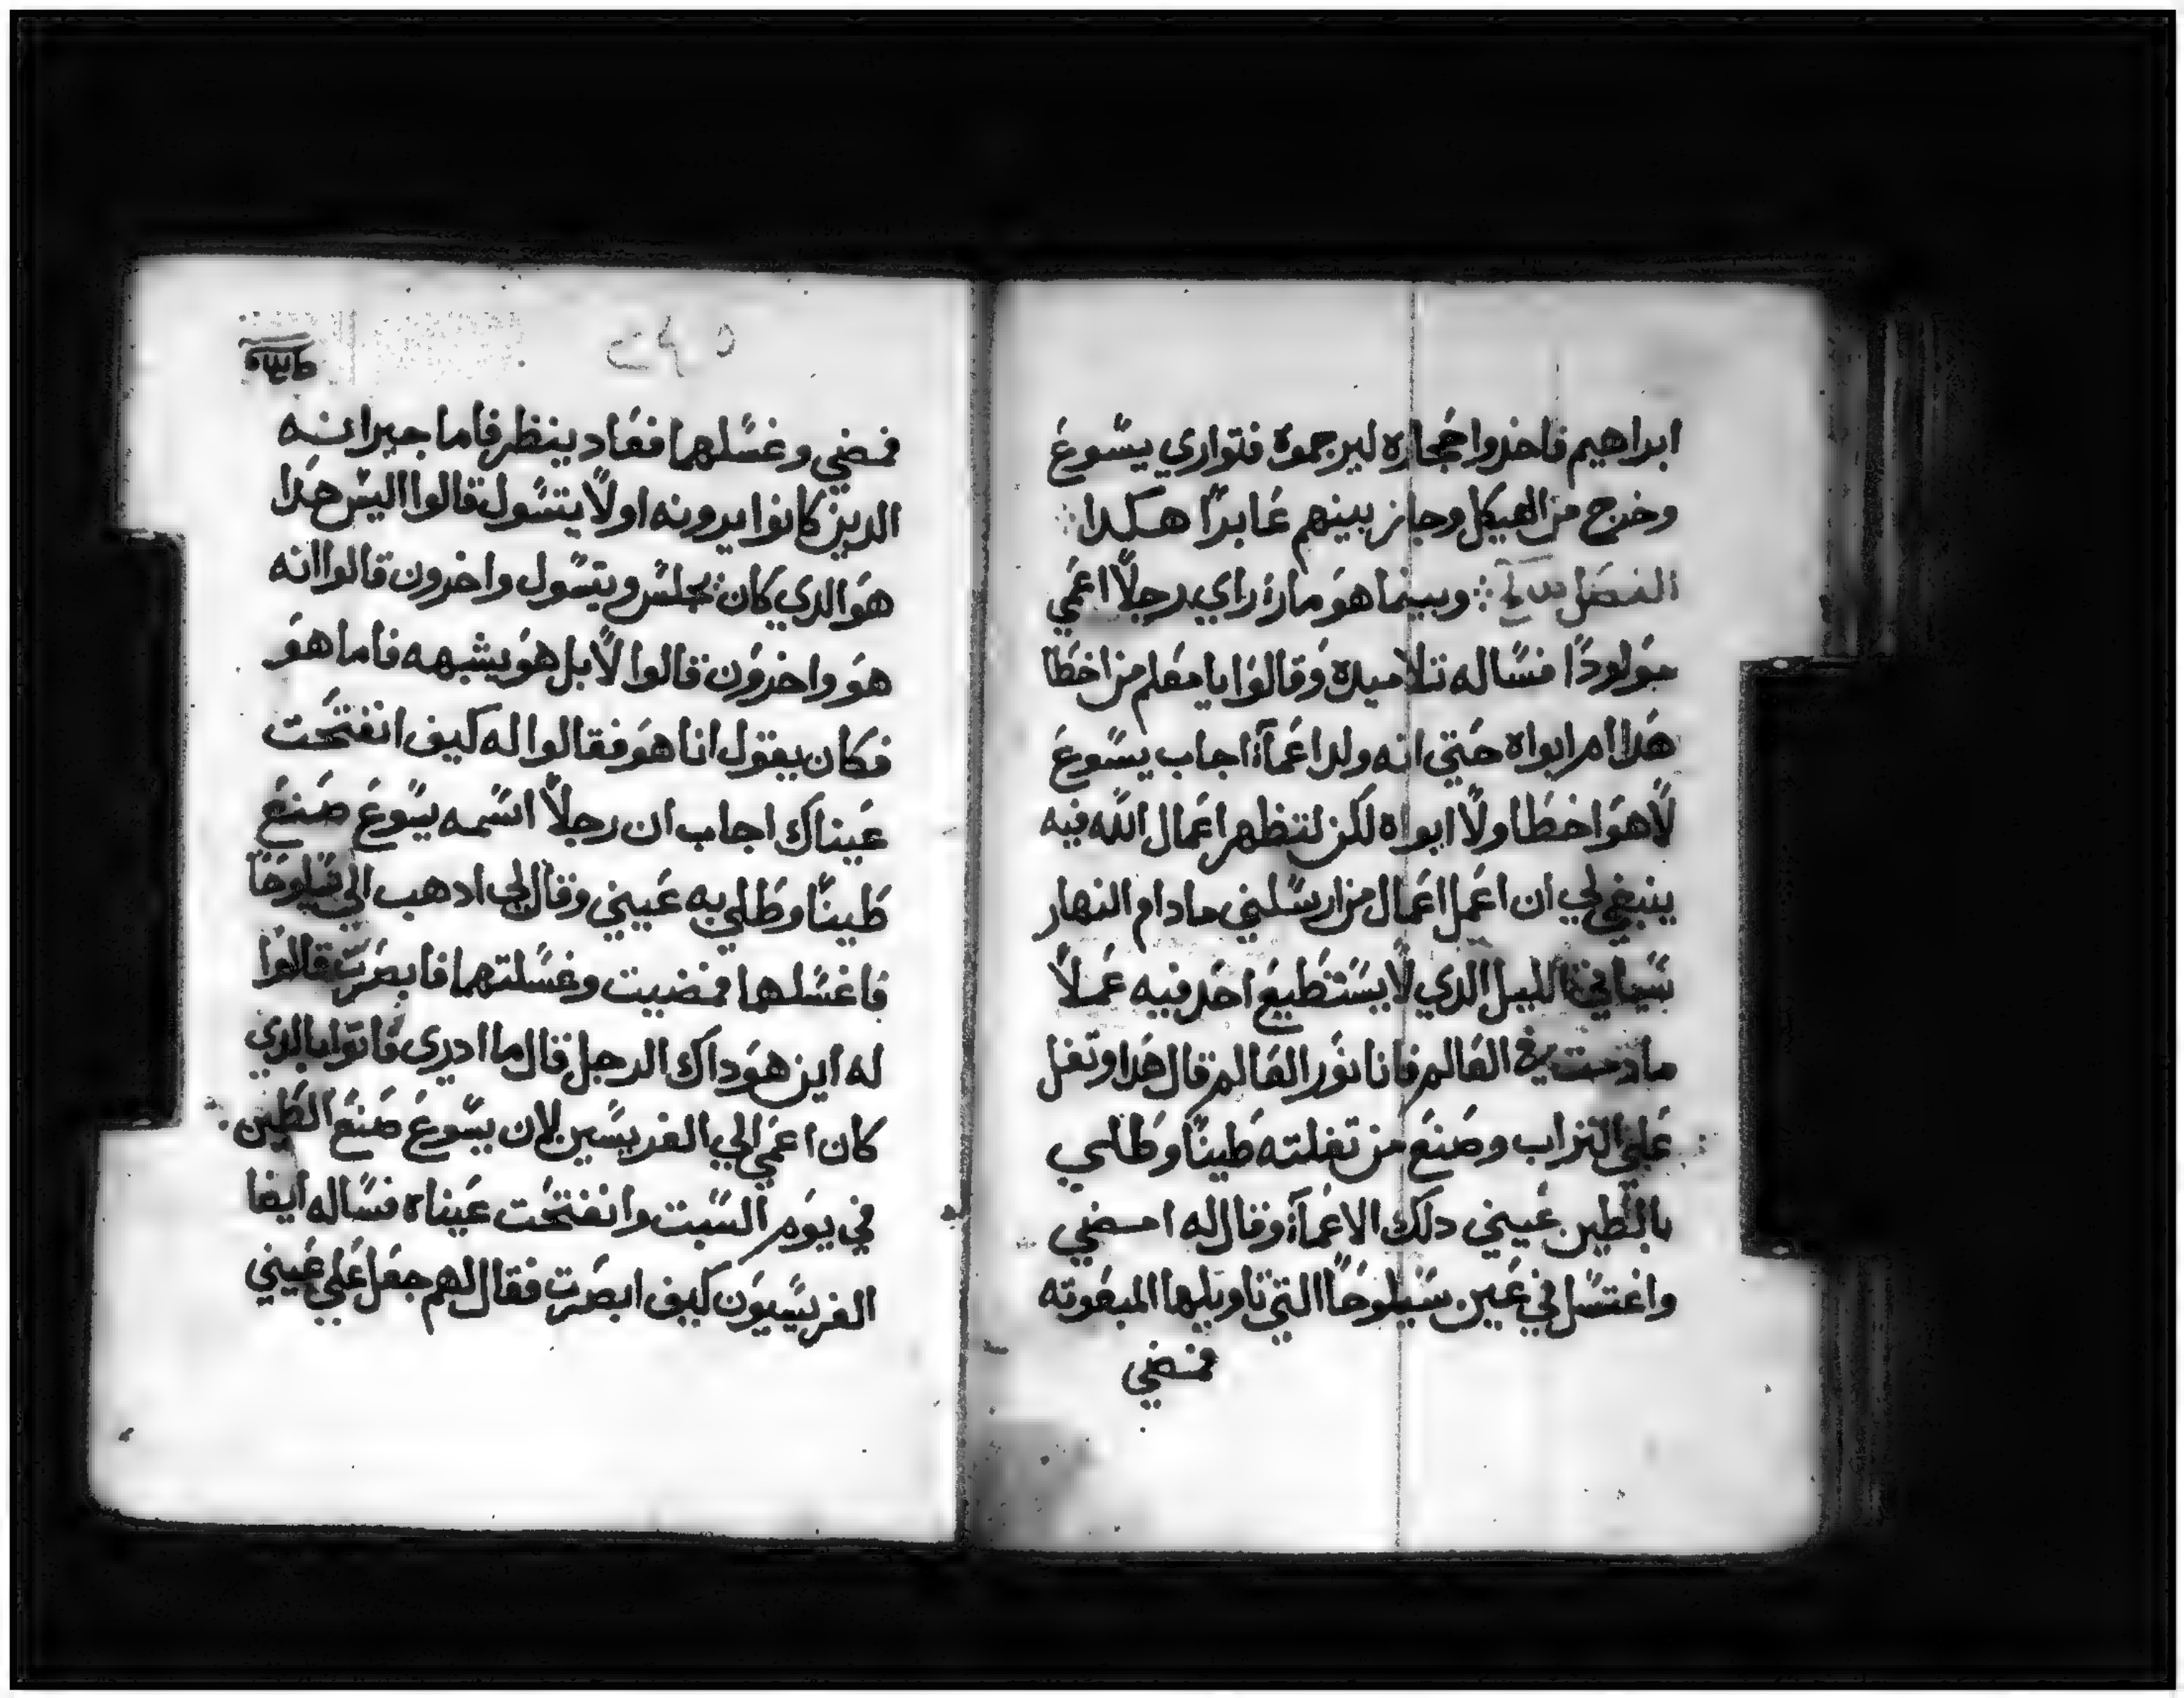 ابراهيم فاخذوا حجاره ليرجموه فتواري يسوع
وخرج من الهيكل وجاز بينهم عابرًا هكدا
الفصل وبينما هو مارًا راي رجلًا اعمي
مولودًا فساله تلاميده وقالوا يا معلم من اخطا
هدا ام ابواه حتي انه ولد اعمآءً اجاب يسوع
لا هو اخطا ولا ابواه لكن لتظهر اعمال الله فيه
ينبغي لي ان اعمل اعمال من ارسلني مادام النهار
سياتي الليل الدي لا يستطيع احد فيه عملًا
مادمت في العالم فانا نور العالم قال هدا وتفل
علي التراب وصنع من تفلته طينًا وطلي
بالطين عيني دلك الاعمآء وقال له امضي
واغتسل في عين سيلوحا التي تاويلها المبعوته
فمضي
فمضي وغسلهما فعاد ينظر فاما جيرانه
الدين كانوا يرونه اولًا يتسول قالوا اليس هدا
هو الدي كان يجلس ويتسول واخرون قالوا انه
هو واخرون قالوا لا بل هو يشبهه فاما هو
فكان يقول انا هو فقالوا له كيف انفتحت
عيناك اجاب ان رجلًا اسمه يسوع صنع
طينًا وطلي به عيني وقال لي ادهب الي سيلوحا
فاغسلها فمضيت وغسلتهما فابصرت قالوا
له اين هو داك الرجل قال ما ادري فاتوا بالدي
كان اعمي الي الفريسين لان يسوع صنع الطين
في يوم السبت وانفتحت عيناه فساله ايضا
الفريسيون كيف ابصرت فقال لهم جعل علي عيني